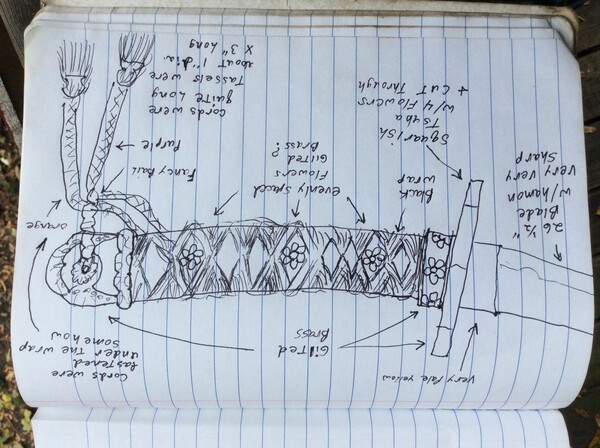 Very Pale yellow
Gilted
Brass
cords were
fastened
under The wrap
somehow
26 1/2"
Blade
w/hamon
very very
sharp
Squarish
Tsuba
w/4 Flowers
+ Cut Through
Black
wrap
Evenly spaced
Flowers
Gilted
Brass ?
orange
Fancy Bail
Purple
cords were
quite Long
Tassels were
about 1" dia.
x 3" Long